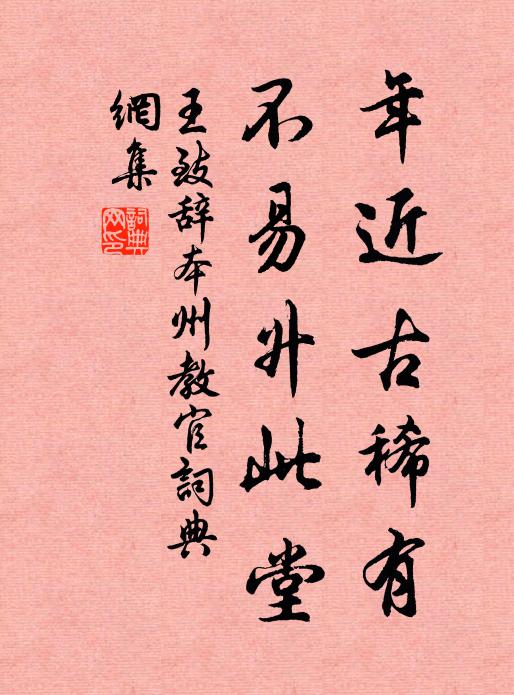 年近古稀有
不易升此堂
王致辞本州教官詞典
網集
詞典
网印